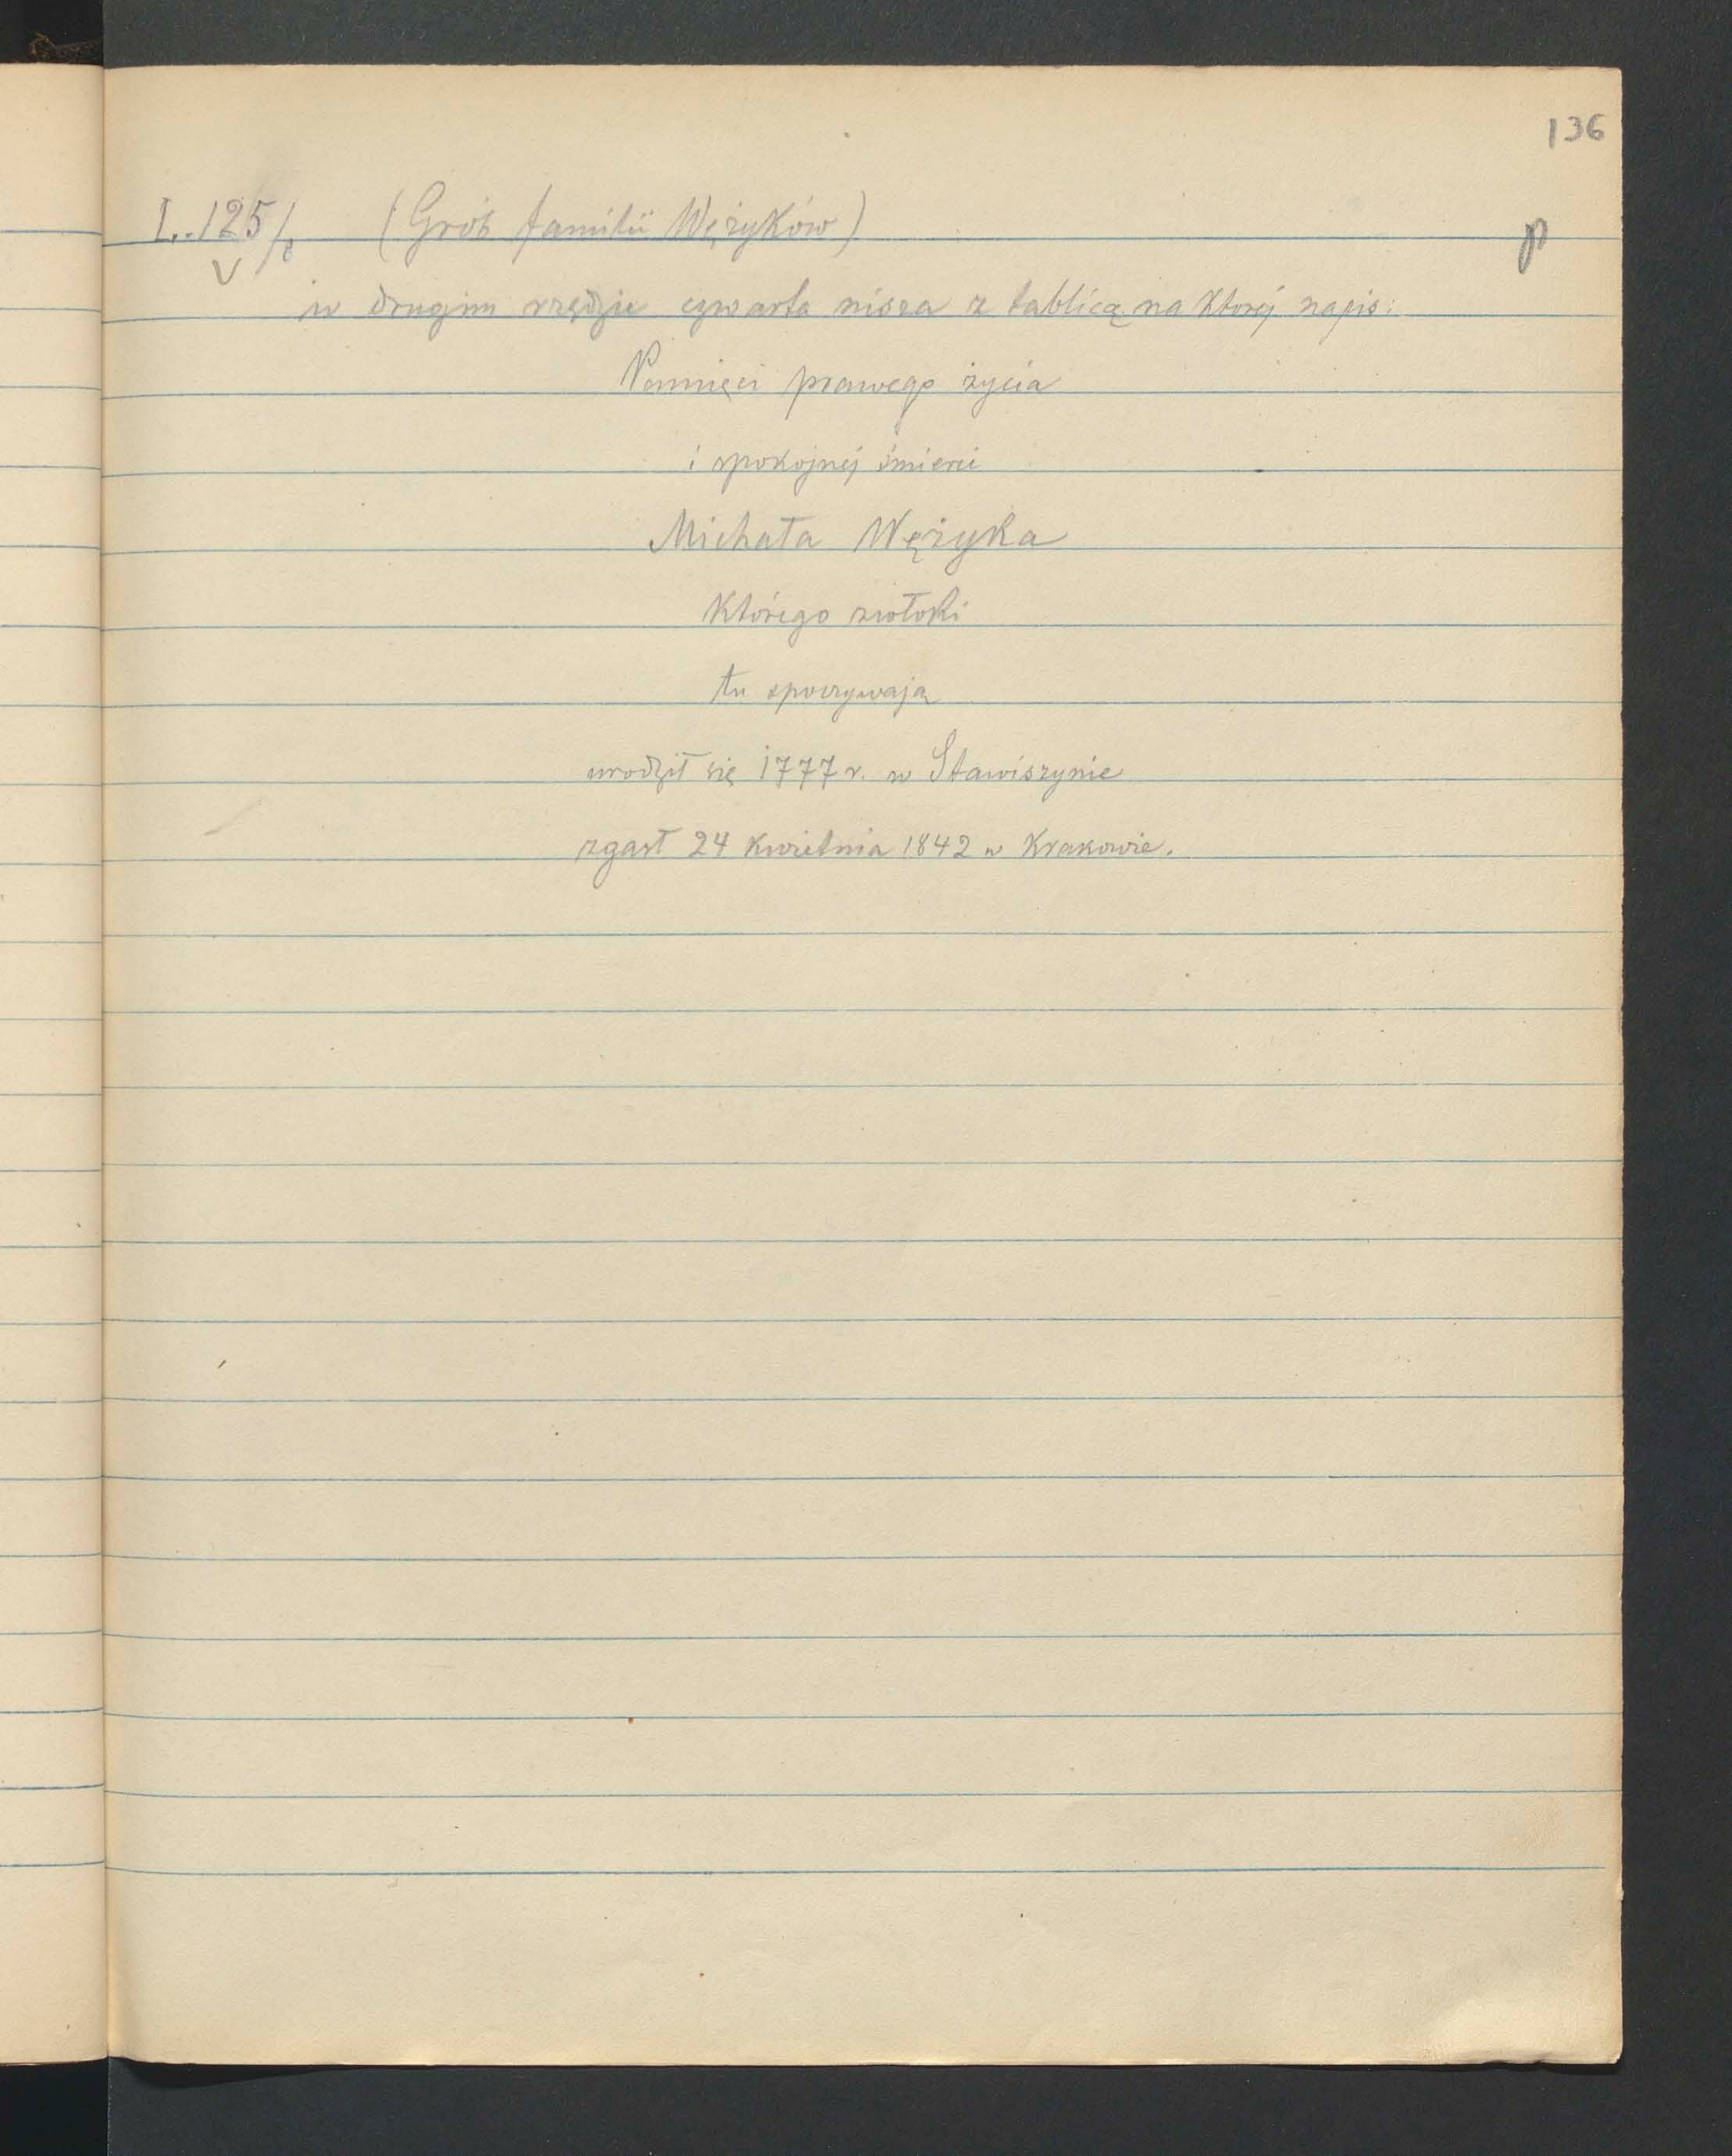 136
L. 125/8 (Grób familii Wężyków)
w drugim rzędzie czwarta nisza z tablicą na której napis:
Pamięci prawego życia
i spokojnej śmierci
Michała Wężyka
którego zwłoki
tu spoczywają
urodził się 1777 r. w Stawiszynie
zgasł 24 kwietnia 1842 w Krakowie.